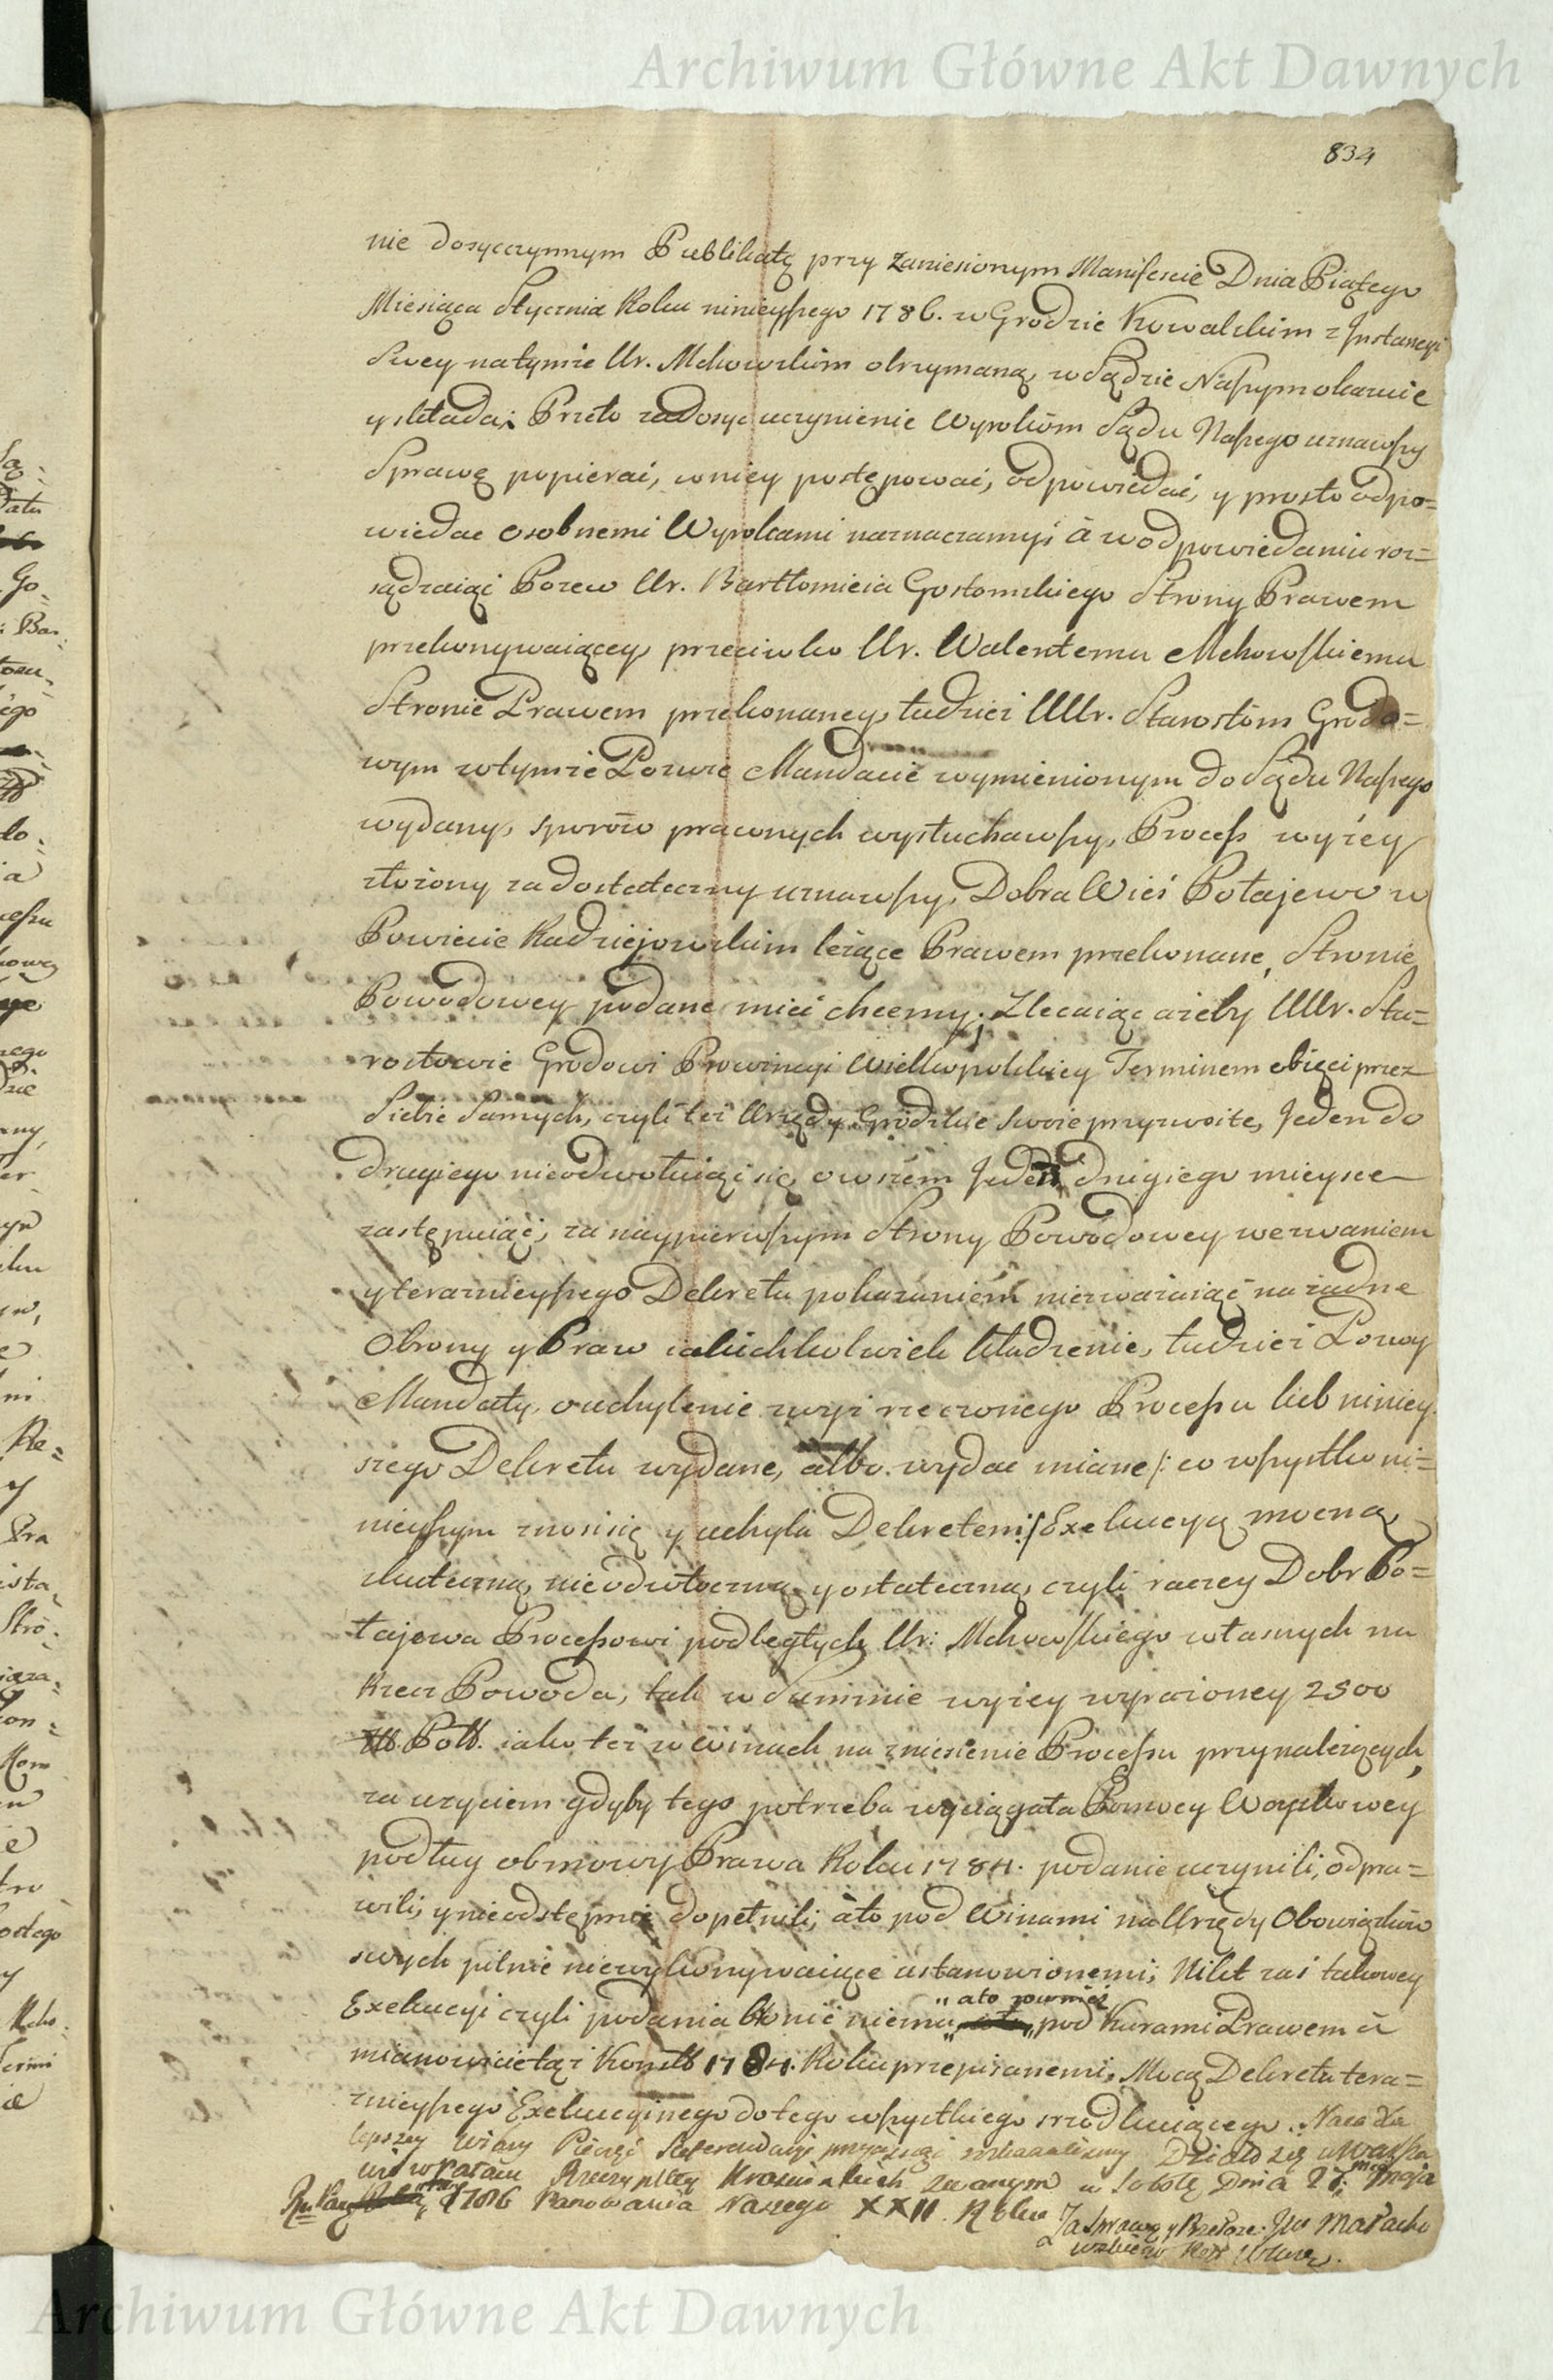 Archiwum Główne Akt Dawnych
834
nie dosycczynnym Publikatę przy zaniesionym Manifescie Dnia Piątego
Miesiąca Stycznia Roku ninieyszego 1786. w Grodzie Kowalskim z Instancyi
Swey natymże Ur. Mchowskim otrzymaną, w Sądzie Naszym okazuie
y składa; Przeto zadosyc uczynienie Wyrokóm Sądu Naszego uznawszy
Sprawę popierać, w niey postępować, odpowiedać, y prosto odpo=
wiedac osobnemi Wyrokami naznaczamy; à w odpowiedaniu roz=
sądzaiąc Pozew Ur. Bartłomieia Gostomskiego Strony Prawem
przekonywaiącey, przeciwko Ur. Walentemu Mchowskiemu
Stronie Prawem przekonaney, tudzież UUr. Starostóm Grodo=
wym w tymże Pozwie Mandacie wymienionym do Sądu Naszego
wydany, sporów prawnych wysłuchawszy, Process wyżey
złożony za dostateczny uznawszy, Dobra Wieś Połajewo w
Powiecie Radziejowskim leżące Prawem przekonane, Stronie
Powodowey podane mieć chcemy; Zlecaiąc ażeby UUr. Sta=
rostowie Grodowi Prowincyi Wielkopolskiey Terminem obięci przez
Siebie Samych, czyli też Urzędy Grodzkie swoie przyzwoite, Jeden do
drugiego nieodwołuiąc się, owszem Jeden drugiego mieysce
zastępuiąc, za naypierwszym Strony Powodowey wezwaniem
y teraznieyszego Dekretu pokazaniem nieuważaiąc na żadne
Obrony y Praw iakichkolwiek kładzenie, tudzież Pozwy
Mandaty, o uchylenie wyż rzeczonego Processu lub niniey
szego Dekretu wydane, albo wydac miane /: co wszystko ni=
nieyszym znosi się y uchyla Dekretem :/ Exekucyą mocną,
skuteczną, nieodwłoczną, y ostateczną, czyli raczey Dobr Po=
łajewa Processowi podległych Ur: Mchowskiego własnych na
Rzecz Powoda, tak w Summie wyżey wyrażoney 2500
Poll. iako też w winach na zniesienie Processu przynależących,
za użyciem gdyby tego potrzeba wyciągała Pomocy Woyskowey
podług obmowy Prawa Roku 1784. podanie uczynili, odpra=
wili, y nieodstępnie dopełnili, àto pod Winami na Urzędy Obowiązków
swych pilnie niewykonywaiące ustanowionemi; Nikt zaś takowey
Exekucyi czyli podania bronić niema, „ ato rownież „ pod Karami Prawem à
mianowicie tąż Konstt 1784. Roku przepisanemi, Mocą Dekretu tera=
znieyszego Exekucyinego do tego wszystkiego srzodkuiącego. Naco dla
lepszey Wiary Pieczęć przycisnąć rozkazalismy Działo się w Warsza
wie w Pałacu Rzeczyplltey Krasinskich zwanym w Sobotę Dnia 27 mca Maja
1786 Panowania Naszego XXII. Roku
Za Sprawą y Przełoże: Jnc Małacho
wskiego
Archiwum Główne Akt Dawnych